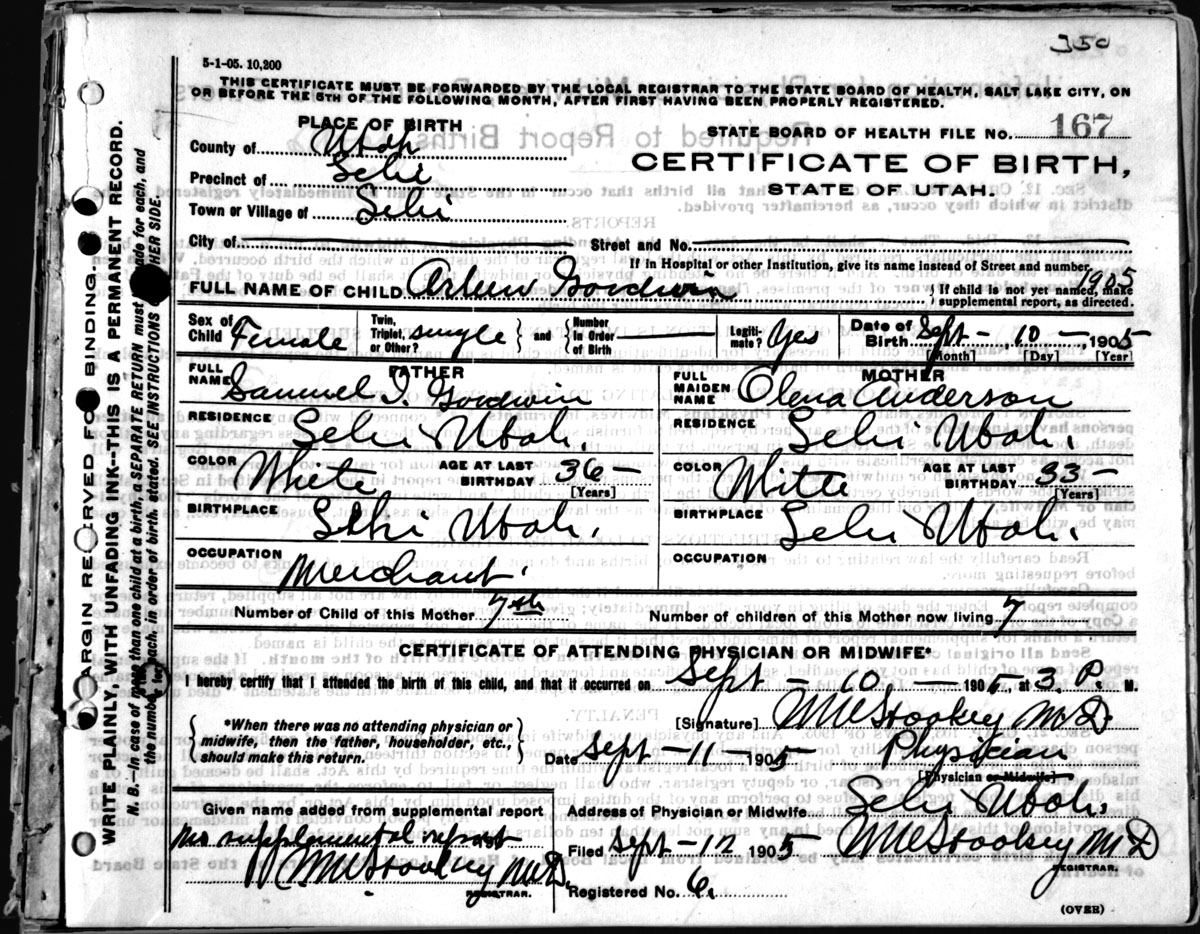 350
5-1-05. 10,200
THIS CERTIFICATE MUST BE FORWARDED BY THE LOCAL REGISTRAR TO THE STATE BOARD OF HEALTH, SALT LAKE CITY, ON
OR BEFORE THE 5TH OF THE FOLLOWING MONTH, AFTER FIRST HAVING BEEN PROPERLY REGISTERED.
PLACE OF BIRTH
STATE BOARD OF HEALTH FILE NO. 167
County of Utah
CERTIFICATE OF BIRTH,
Precinct of Lehi
STATE OF UTAH.
Town or Village of Lehi
City of Street and No.
If in Hospital or other Institution, give its name instead of Street and number.
1905
FULL NAME OF CHILD Goodwin { If child is not yet named, make
supplemental report, as directed.
Sex of Child Female Twin, Triplet, or Other? single } and { Number in Order of Birth Legiti-mate? Yes Date of Birth Sept - 10 - 1905
[Month] [Day] [Year]
FATHER MOTHER
FULL NAME Samuel I. Goodwin FULL MAIDEN NAME Olena Anderson
RESIDENCE Lehi Utah. RESIDENCE Lehi Utah.
COLOR White AGE AT LAST BIRTHDAY 36 - [Years] COLOR White AGE AT LAST BIRTHDAY 33 - [Years]
BIRTHPLACE Lehi Utah. BIRTHPLACE Lehi Utah.
OCCUPATION Merchant. OCCUPATION
Number of Child of this Mother 7th Number of children of this Mother now living 7
CERTIFICATE OF ATTENDING PHYSICIAN OR MIDWIFE*
I hereby certify that I attended the birth of this child, and that it occurred on Sept - 10, - 1905, at 3. P. M.
{ *When there was no attending physician or
midwife, then the father, householder, etc.,
should make this return. }
[Signature] Stookey M.D.
Date Sept - 11 - 1905 Physician
[Physician or Midwife]
Given name added from supplemental report
Address of Physician or Midwife Lehi Utah.
no supplemental report
Filed Sept - 12 1905 Stookey M D
REGISTRAR.
Stookey M.D.
REGISTRAR.
Registered No. 6.
(OVER)
MARGIN RESERVED FOR BINDING.
WRITE PLAINLY, WITH UNFADING INK--THIS IS A PERMANENT RECORD.
N. B.--In case of more than one child at a birth, a SEPARATE RETURN must be made for each, and
the number of each, in order of birth, stated. SEE INSTRUCTIONS OTHER SIDE.